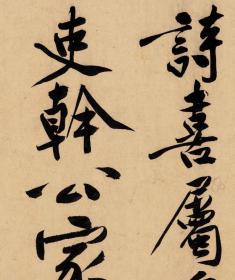 詩喜屬
吏幹公家